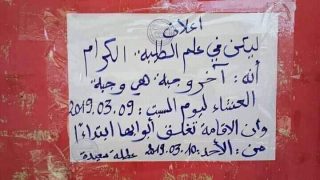 اعلان
ليكن في علم الطلبة الكرام
أنه: آخر وجبة هي وجبة
العشاء ليوم السبت: 2019.03.09
وان الاقامة تغلق أبوابها ابتداءا
من: الأحد: 2019.03.10 عطلة سعيدة